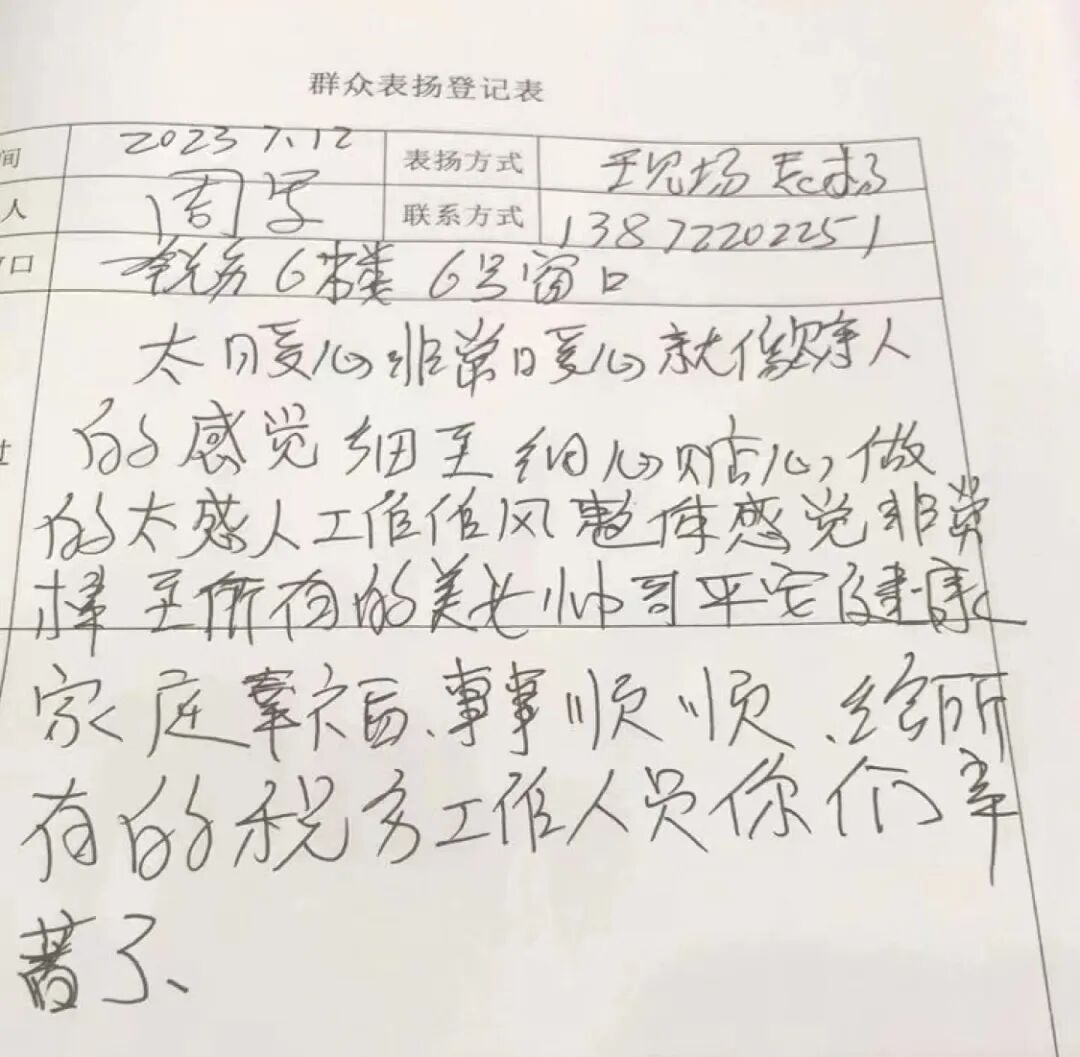 群众表扬登记表
间 2023 7.12 表扬方式 现场表扬
人 周 联系方式 13872202251
口 税务6楼 6号窗口
太暖心非常暖心就像家人
的感觉细至细心贴心,做
过
的太感人工作作风整体感觉非常
棒 至所有的美女帅哥平安健康
家庭幸福、事事顺顺、给所
有的税务工作人员你们辛
苦了、